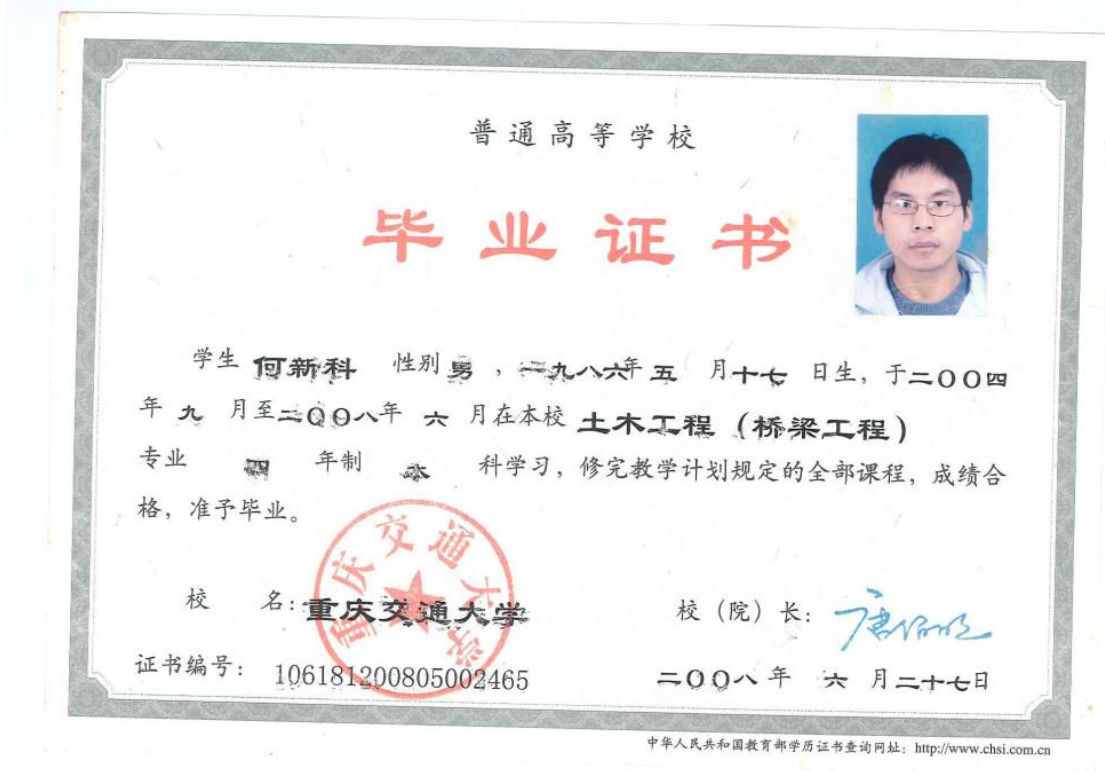 普通高等学校
毕业证书
学生 何新科 性别 男 ，一九八六年 五 月十七 日生，于二〇〇四
年 九 月至二〇〇八年 六 月在本校 土木工程（桥梁工程）
专业 四 年制 本 科学习，修完教学计划规定的全部课程，成绩合
格，准予毕业。
重庆交通大学
校 名：重庆交通大学 校（院）长：唐伯明
证书编号： 106181200805002465 二〇〇八 年 六 月二十七日
中华人民共和国教育部学历证书查询网址：http://www.chsi.com.cn